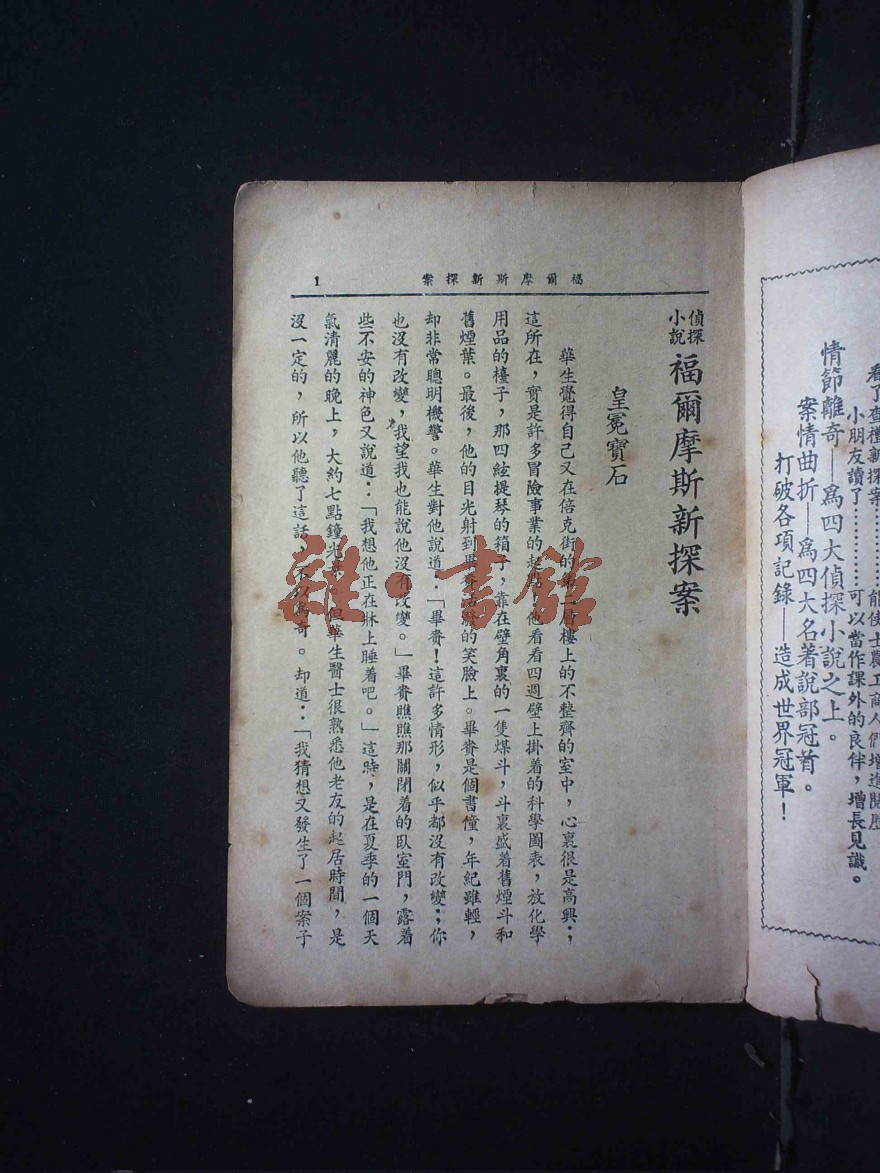 看了查禮新探案………能使士農工商人們增進閱歷
小朋友讀了…………可以當作課外的良伴，增長見識。
情節離奇—爲四大偵探小說之上。
案情曲折—爲四大名著說部冠首。
打破各項記錄—造成世界冠軍！
福爾摩斯新探案
1
偵探小說 福爾摩斯新探案
皇冕寶石
華生覺得自己又在倍克街的第一層樓上的不整齊的室中，心裏很是高興；
這所在，實是許多冒險事業的起點。他看看四週壁上掛着的科學圖表，放化學
用品的檯子，那四絃提琴的箱子，靠在壁角裏的一隻煤斗，斗裏盛着舊煙斗和
舊煙葉。最後，他的目光射到畢賚活潑的笑臉上。畢賚是個書僮，年紀雖輕，
却非常聰明機警。華生對他說道：「畢賚！這許多情形，似乎都沒有改變；你
也沒有改變，我望我也能說他沒有改變。」畢賚瞧瞧那關閉着的臥室門，露着
些不安的神色又說道：「我想他正在牀上睡着吧。」這時，是在夏季的一個天
氣清麗的晚上，大約七點鐘光景。但華生醫士很熟悉他老友的起居時間，是
沒一定的，所以他聽了這話，不以爲奇。却道：「我猜想又發生了一個案子
雜·書館